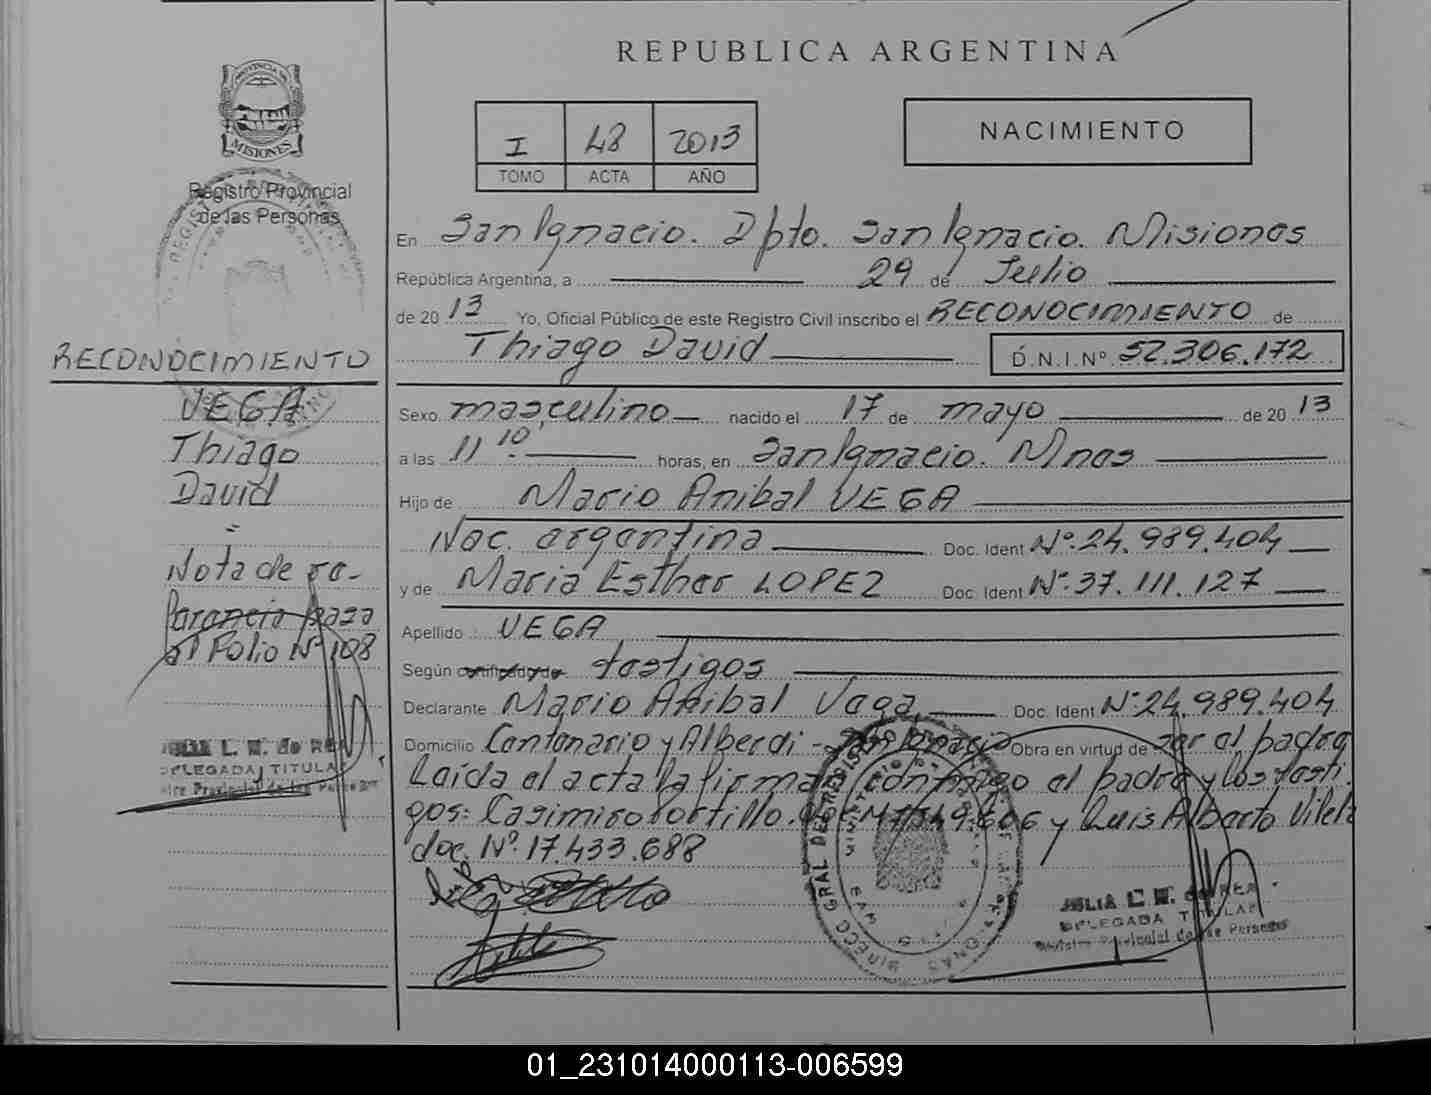 REPUBLICA ARGENTINA
PROVINCIA DE
MISIONES
Registro Provincial
de las Personas
I 48 2013
TOMO ACTA AÑO
NACIMIENTO
En San Ignacio. Dpto. San Ignacio. Misiones
República Argentina, a 29 de Julio
de 2013 Yo, Oficial Público de este Registro Civil inscribo el RECONOCIMIENTO de
Thiago David D.N.I.Nº 52.306.172
Sexo masculino nacido el 17 de mayo de 2013
a las 11 10. horas, en San Ignacio. Mnes
Hijo de Mario Anibal VEGA
Nac. argentina Doc. Ident Nº.24.989.404
y de Maria Esther LOPEZ Doc. Ident Nº.37.111.127
Apellido VEGA
Según certificado de testigos
Declarante Mario Anibal Vega Doc. Ident Nº24.989.404
Domicilio Centenario y Alberdi - San Ignacio Obra en virtud de ser el padre
Leída el acta la firma conmigo el padre y los testi-
gos: Casimiro Portillo. y Luis Alberto
doc. Nº.17.433.688
JULIA L. M. de
DELEGADA TITULAR
Registro Provincial de las Personas
RECONOCIMIENTO
VEGA
Thiago
David
Nota de re-
ferencia pasa
al Folio Nº 108
JULIA L. M. de
DELEGADA TITULAR
Registro Provincial de las Personas
01_231014000113-006599